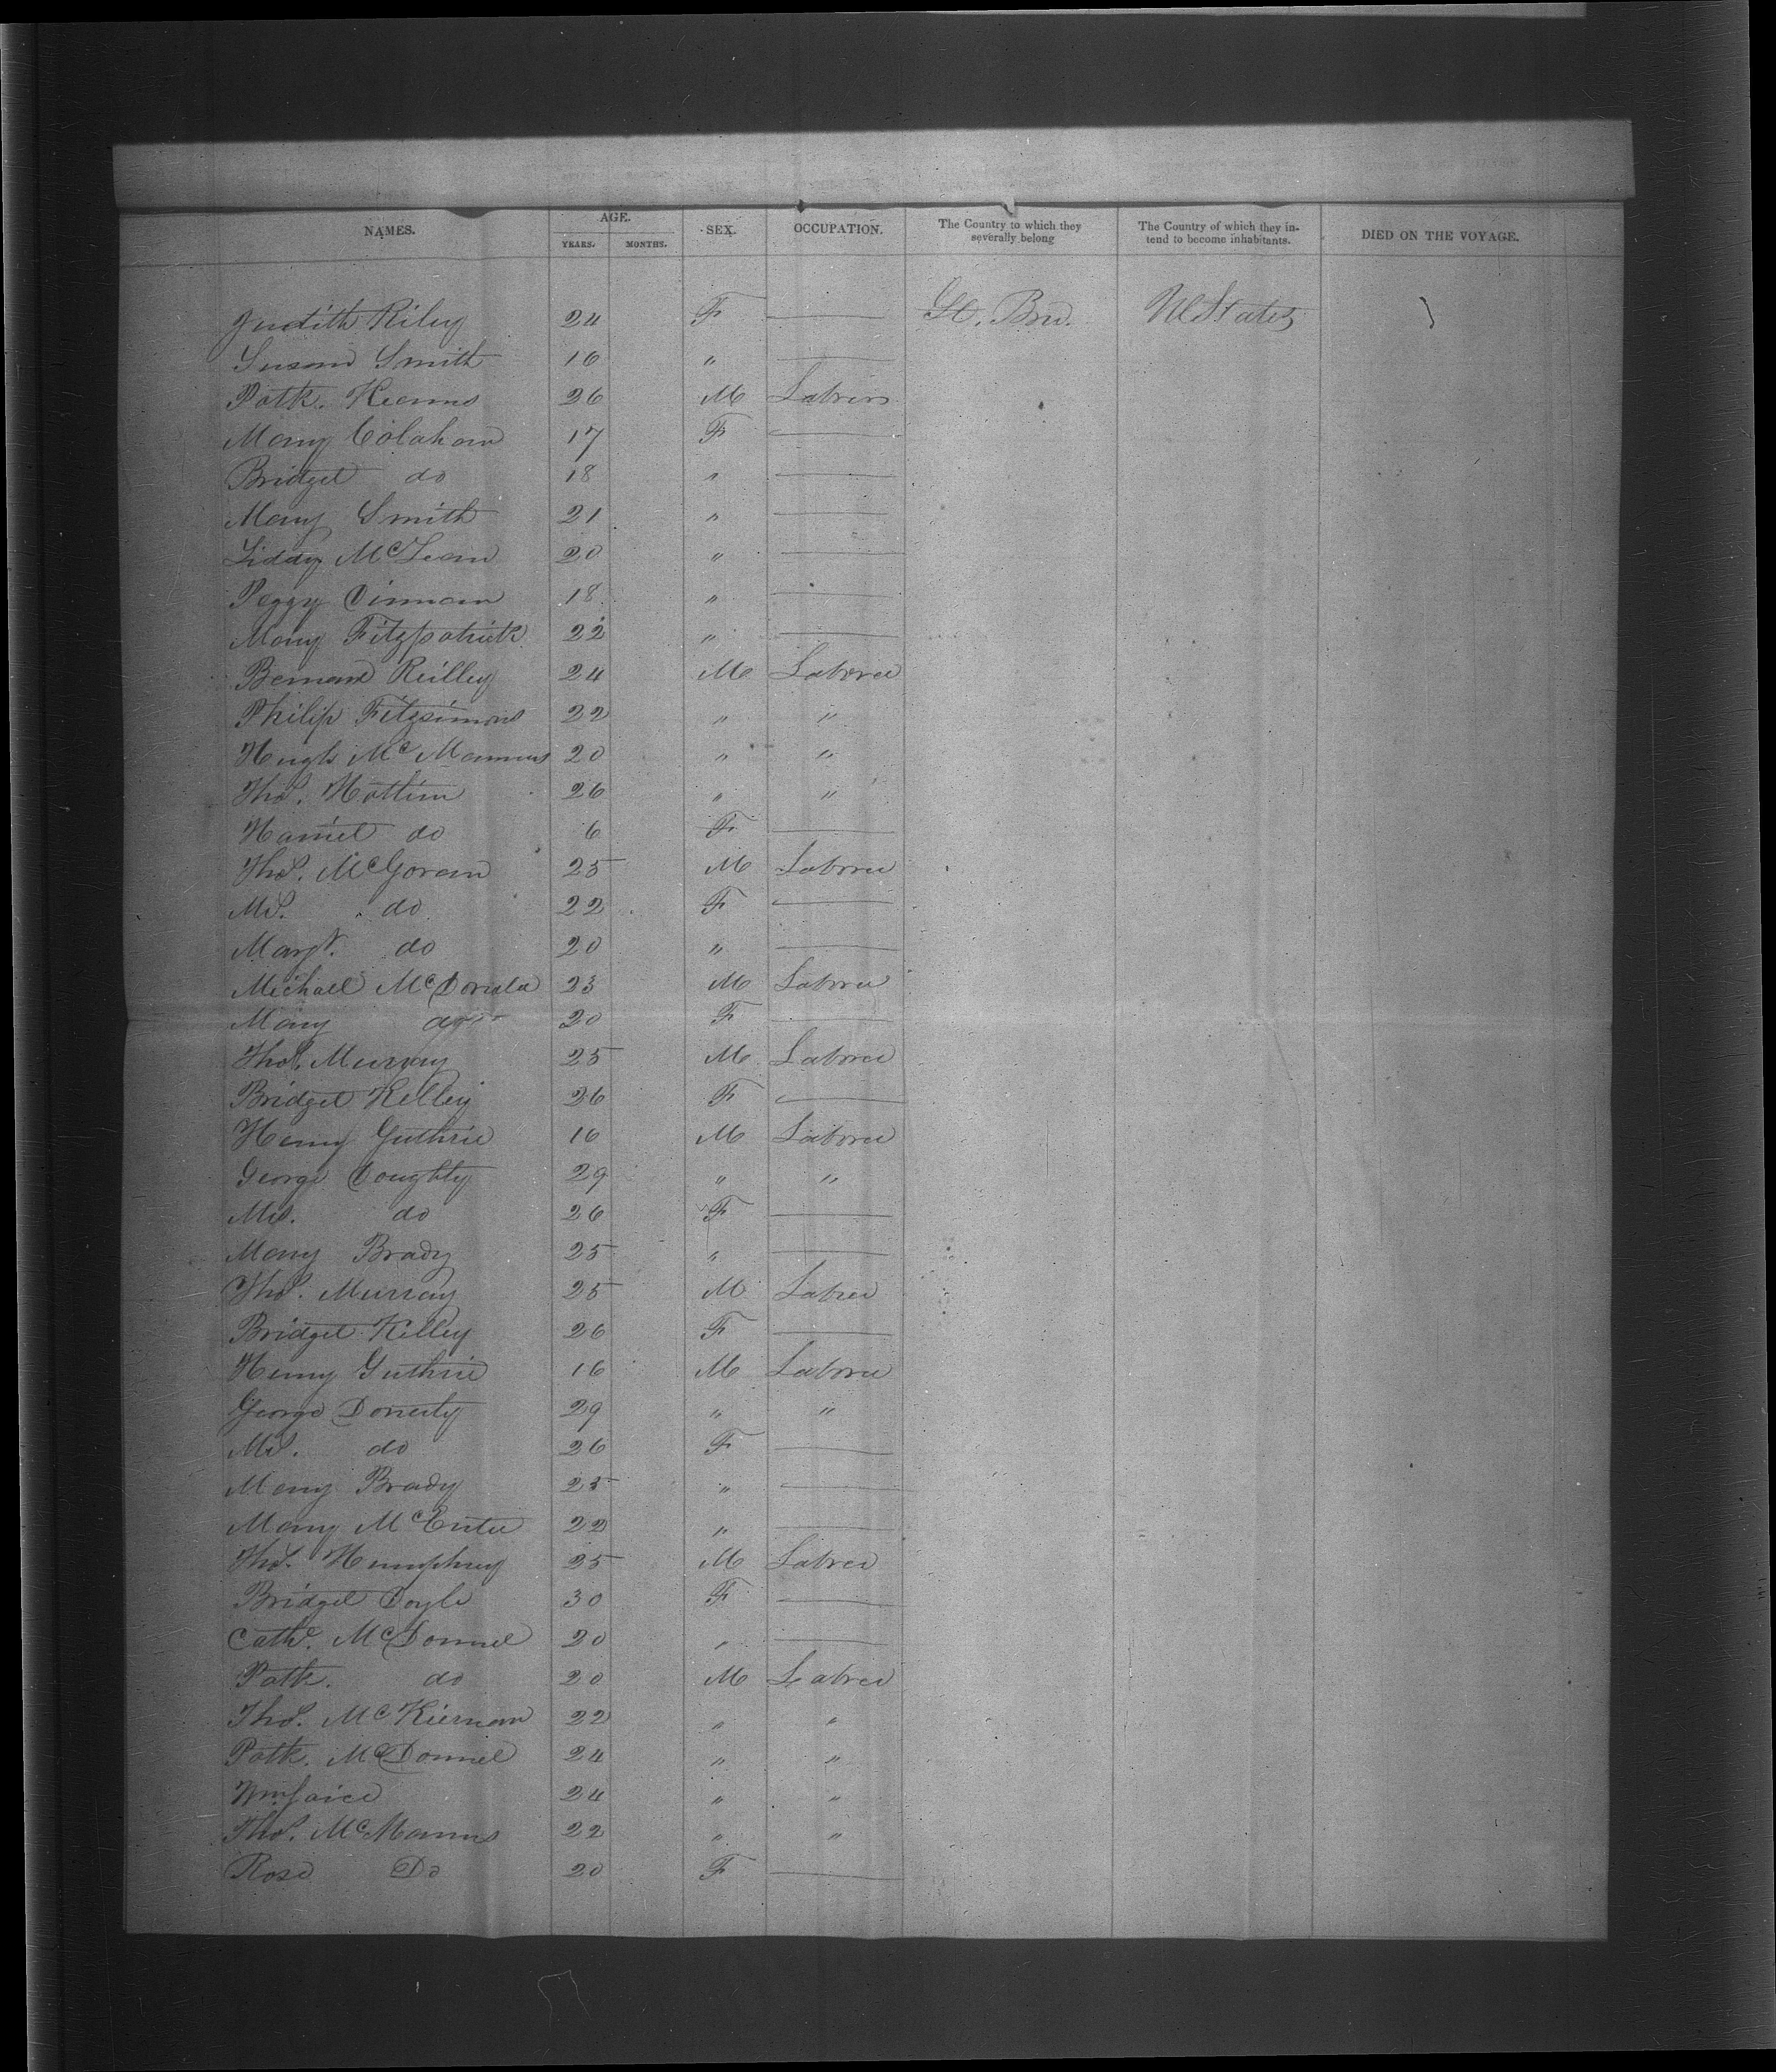 NAMES. AGE. SEX. OCCUPATION. The Country to which they severally belong The Country of which they in- tend to become inhabitants. DIED ON THE VOYAGE.
YEARS. MONTHS.
Judith Riley 24 F — Gt. Bn. U States
Susan Smith 16 " —
Patk. Kearns 26 M
Mary Colahan 17 F —
Bridget do 18 " —
Mary Smith 21 " —
Liddy McLean 20 " —
Peggy Dinnan 18 " —
Mary Fitzpatrick 22 " —
Bernard Reilley 24 M Laborer
Philip Fitzsimons 22 " "
Hugh McMannus 20 " "
Thos. 26 " "
Harriet do 6 F —
Thos. McGoran 25 M Laborer
Mrs. do 22 F —
Margt. do 20 " —
Michael McDonald 23 M Laborer
Mary do 20 F —
Thos. Murray 25 M Laborer
Bridget Kelley 26 F —
Henry Guthrie 16 M Laborer
George Doughty 29 " "
Mrs. do 26 F —
Mary Brady 25 " —
Thos. Murray 25 M Labrer
Bridget Kelley 26 F —
Henry Guthrie 16 M Laborer
George 29 " "
Mrs. do 26 F —
Mary Brady 25 " —
Mary McEntee 22 " —
Thos. Humphrey 25 M Labrer
Bridget Doyle 30 F —
Cathe. McDonnel 20 " —
Patk. do 20 M Labrer
Thos. McKiernan 22 " "
Patk. McDonnel 24 " "
Wm 24 " "
Thos. McManus 22 " "
Rose Do 20 F —